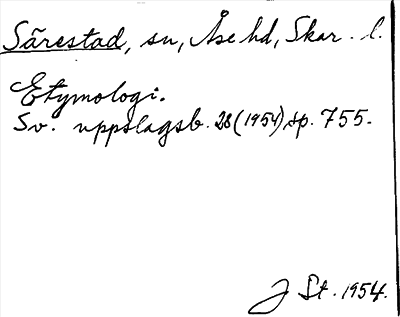 Särestad, sn, Åse hd, Skar. l.
Etymologi.
Sv. uppslagsb. 28 (1954) sp. 755.
J St. 1954.